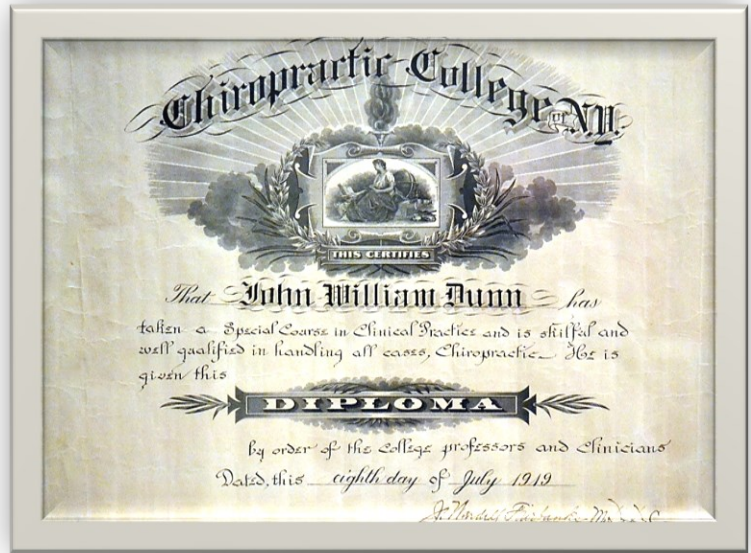 Chiropractic College of N.Y.
THIS CERTIFIES
That John William Dunn has
taken a Special Course in Clinical Practice and is skilful and
well qualified in handling all cases, Chiropractic. He is
given this
DIPLOMA
by order of the college professors and Clinicians
Dated, this eighth day of July 1919